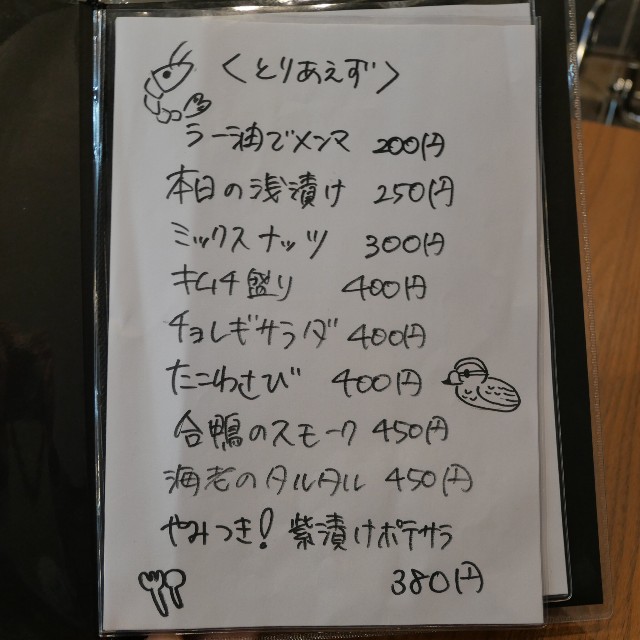 〈とりあえず〉
ラー油でメンマ 200円
本日の浅漬け 250円
ミックスナッツ 300円
キムチ盛り 400円
チョレギサラダ 400円
たこわさび 400円
合鴨のスモーク 450円
海老のタルタル 450円
やみつき！紫漬けポテサラ
380円